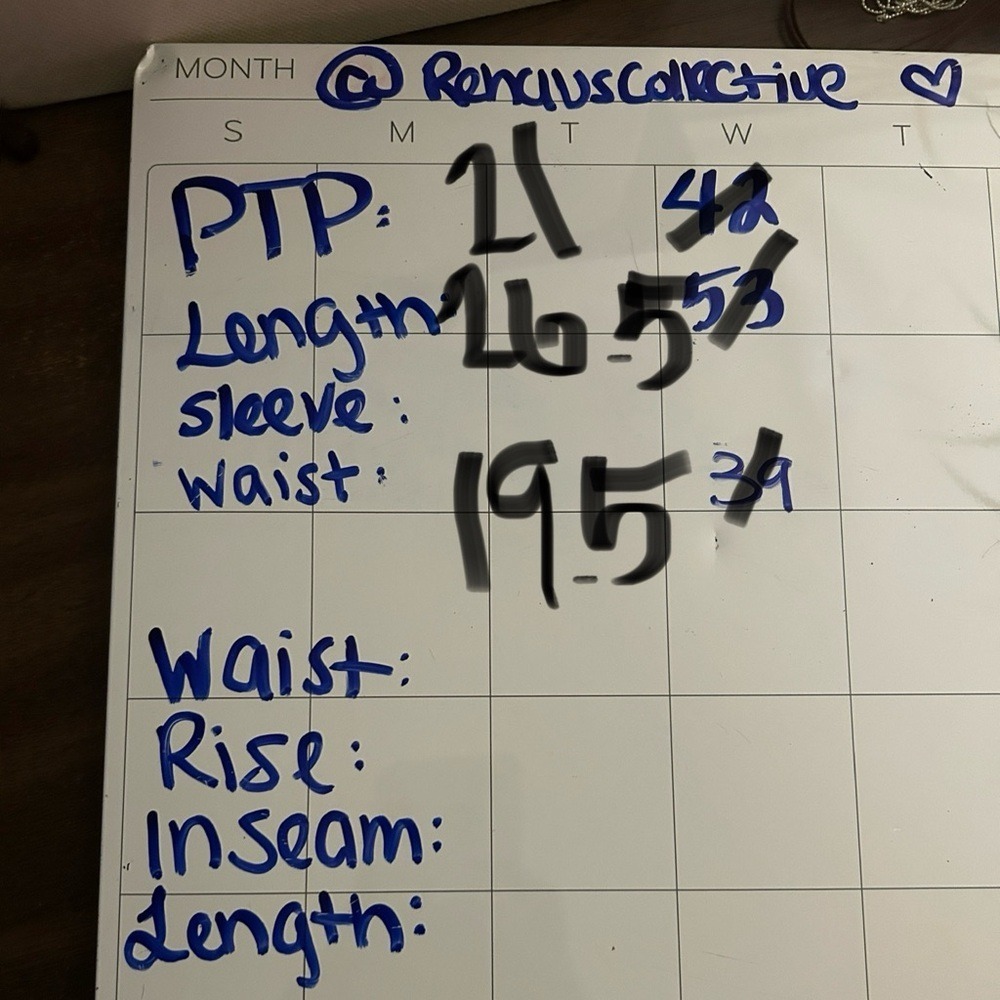 MONTH @RenaiusCollective ♡
S M T W T
PTP: 21 42
Length: 26.5 53
sleeve:
waist: 19.5 39
Waist:
Rise:
Inseam:
Length: